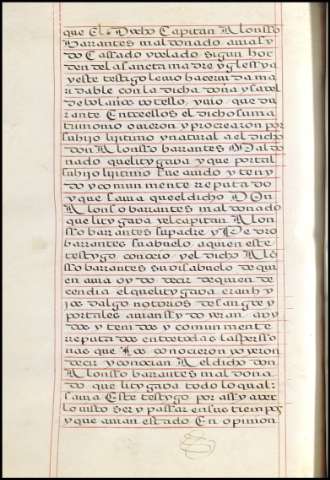 que El Dicho Capitan Alonsso
Barrantes maldonado auia sy
do Cassado y belado sigun hor
den de la sancta madre ygles sya
y este testigo le uio hacer uida ma
ridable con la dicha doña ysavel
de bolaños botello, y uio que du
rante Entre ellos el dicho suma
trimonio ouieron y procrearon por
su hijo lijitimo y natural a el dicho
don Alonsso barrantes Maldo
nado que litygaua y que por tal
su hijo lijitimo fue auido y teny
do y comunmente reputado
y que sauia que el dicho DOn
Alonsso barrantes maldonado
que lityga ua y el capitan Alon
sso barrantes su padre y Pedro
barrantes su abuelo a quien este
testygo conocio y el dicho Alo
sso barrantes su visabuelo de qui
en auia oydo decir de quien de
cendia el que lityga ua eran hi
jos dalgo notorios de sangre y
por tales auian sydo y eran auy
dos y tenidos y comunmente
reputados entre todas las perso
nas que los conocieron oyeron
decir y conocian A el dicho don
Alonsso barrantes maldona
do que lityga ua todo lo qual
sauia Este testygo por assy auer
lo visto ser y passar en sus tiempos
y que auian estado En opinion